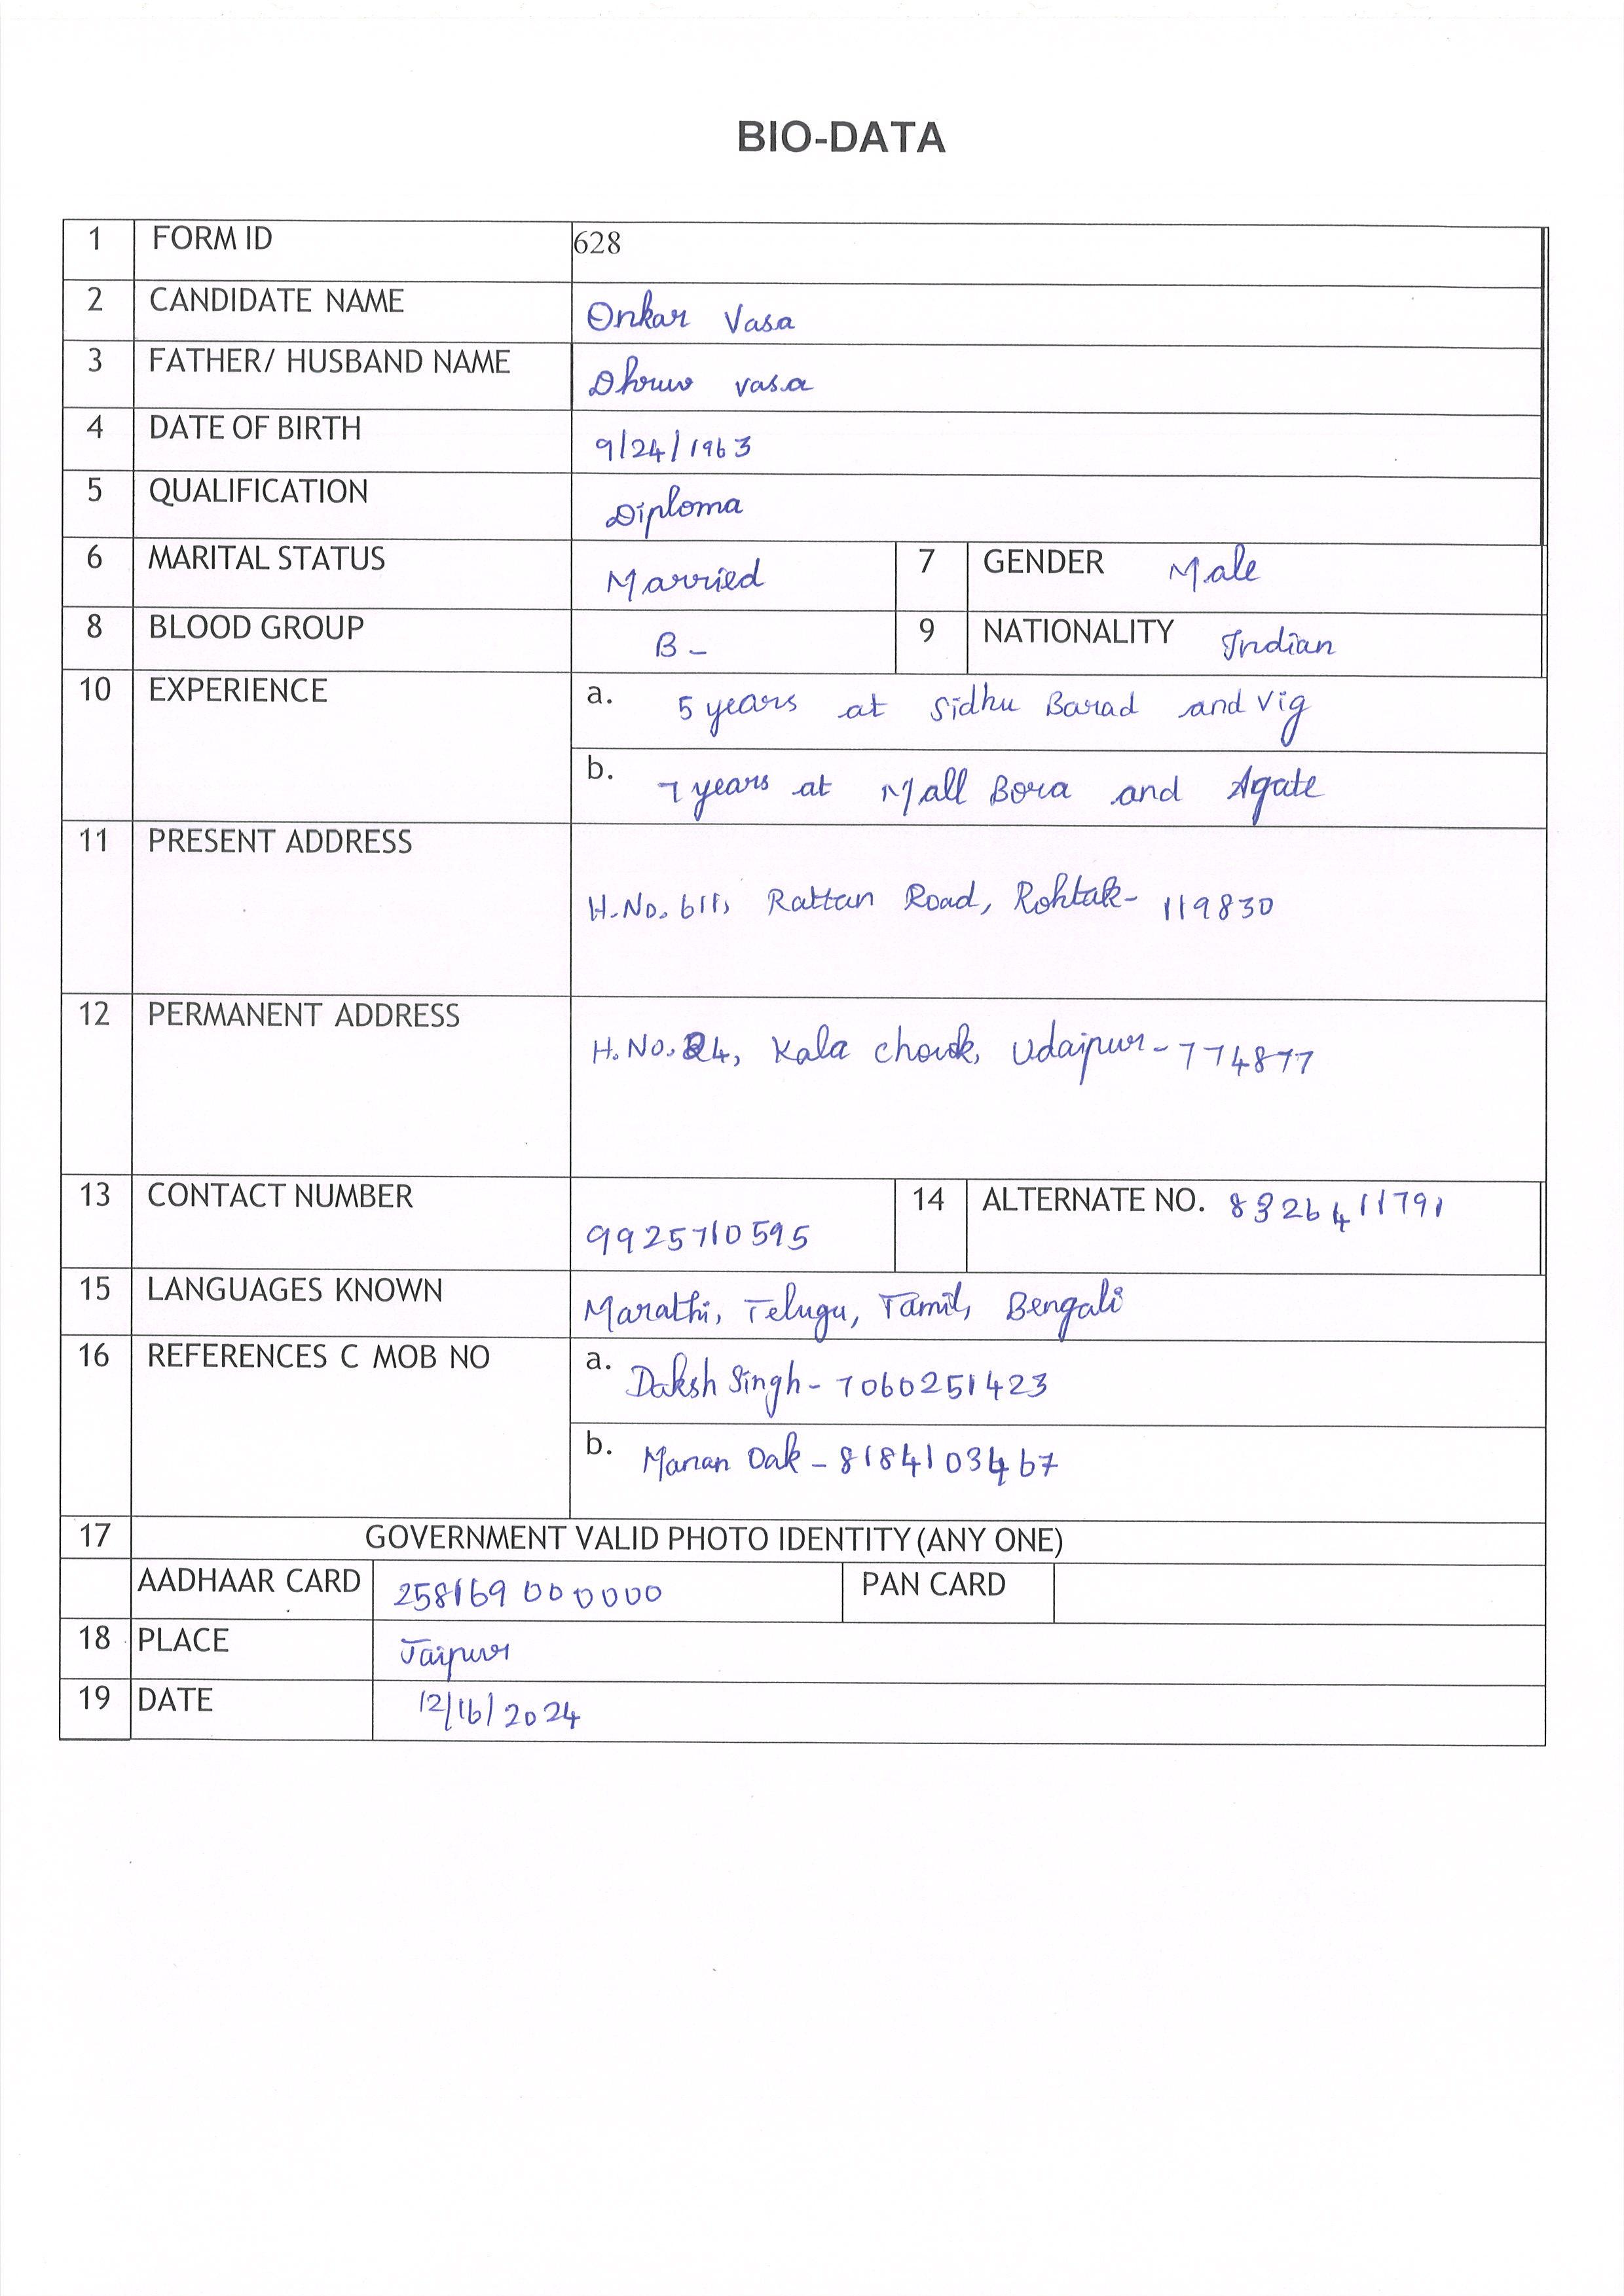 BIO-DATA
1 FORM ID 628
2 CANDIDATE NAME Onkar Vasa
3 FATHER/ HUSBAND NAME Dhruv vasa
4 DATE OF BIRTH 9/24/1963
5 QUALIFICATION Diploma
6 MARITAL STATUS Married 7 GENDER Male
8 BLOOD GROUP B- 9 NATIONALITY Indian
10 EXPERIENCE a. 5 years at Sidhu Barad and Vig
b. 7 years at Mall Bora and Agate
11 PRESENT ADDRESS
H.No. 611, Rattan Road, Rohtak- 119830
12 PERMANENT ADDRESS
H.No. 24, Kala chowk, Udaipur-774877
13 CONTACT NUMBER 9925710595 14 ALTERNATE NO. 8326411791
15 LANGUAGES KNOWN Marathi, Telugu, Tamil, Bengali
16 REFERENCES C MOB NO a. Daksh Singh- 7060251423
b. Manan Oak - 8184103467
17 GOVERNMENT VALID PHOTO IDENTITY (ANY ONE)
AADHAAR CARD 258169000000 PAN CARD
18 PLACE Jaipur
19 DATE 12/16/2024